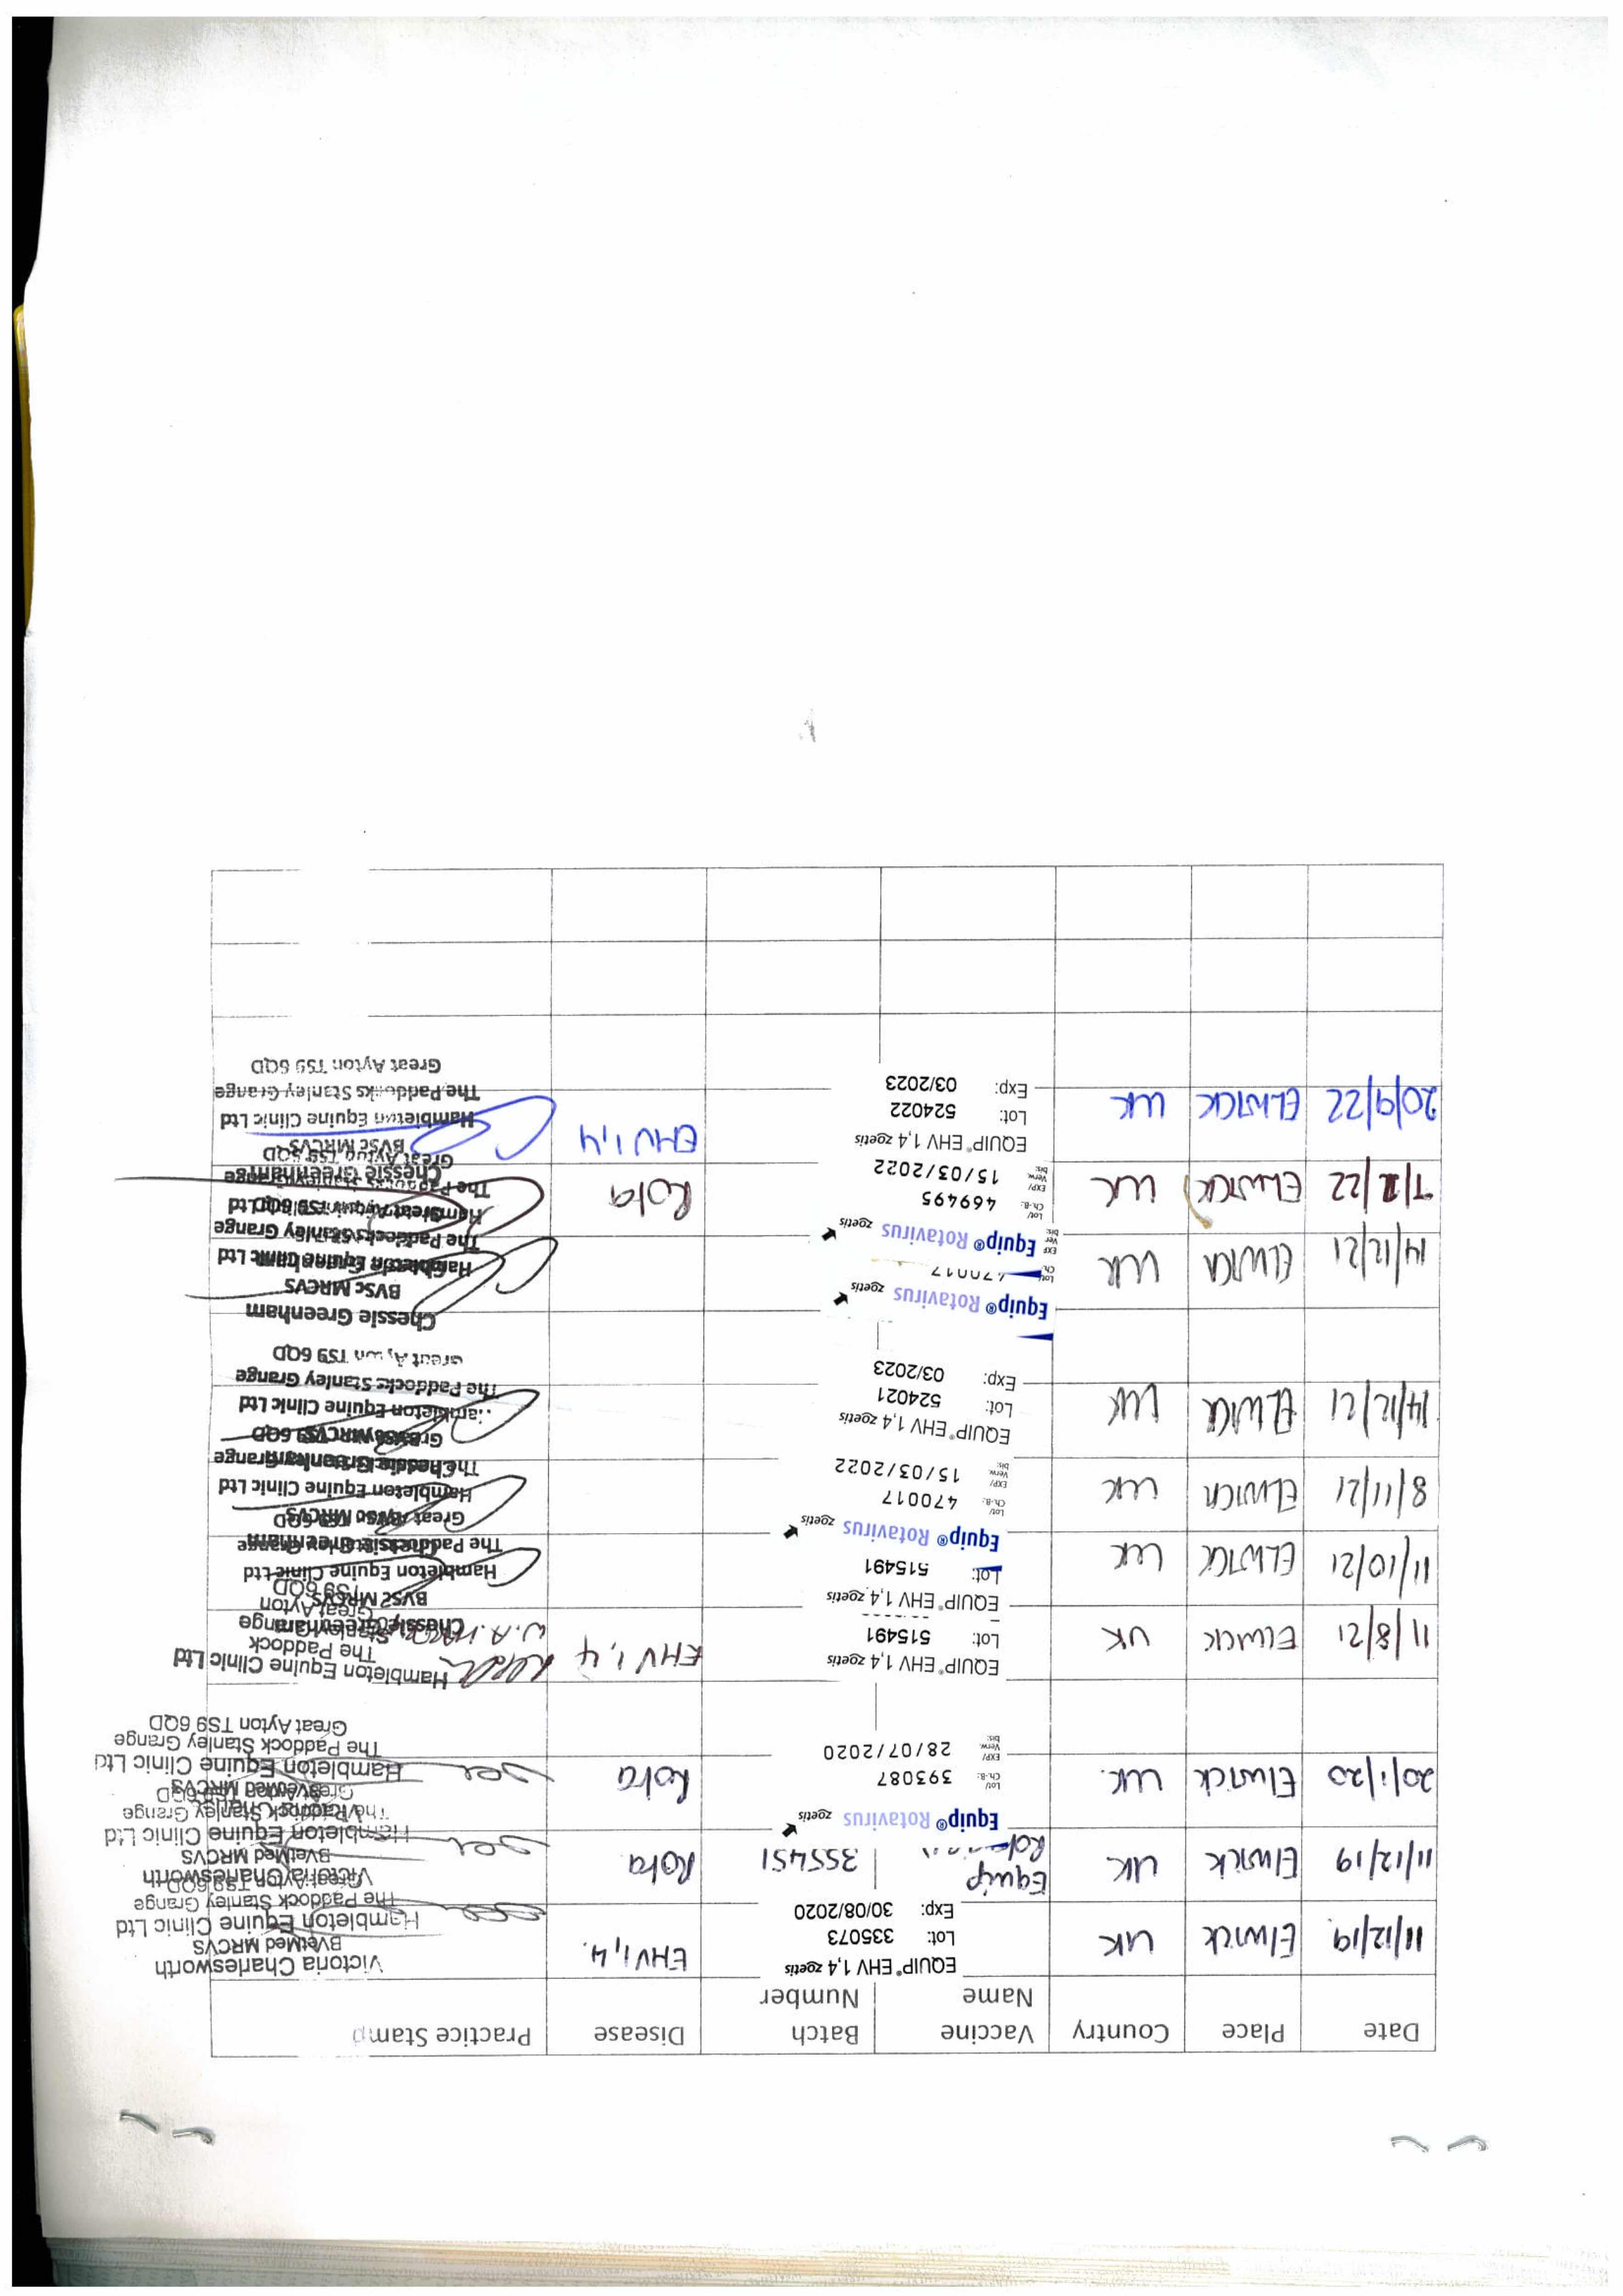 Date Place Country Vaccine Name Batch Number Disease Practice Stamp
11/12/19. Elwick UK EQUIP® EHV 1,4 zoetis EHV1,4. Victoria Charlesworth
Lot: 335073 BVetMed MRCVS
Exp: 30/08/2020 Hambleton Equine Clinic Ltd
The Paddock Stanley Grange
Great Ayton TS9 6QD
11/12/19 Elwick UK Equip 355451 Rota Victoria Charlesworth
BVetMed MRCVS
Hambleton Equine Clinic Ltd
The Paddock Stanley Grange
Great Ayton TS9 6QD
20/1/20 Elwick UK. Equip® Rotavirus zoetis Rota Victoria Charlesworth
Lot/ Ch.-B.: 393087 BVetMed MRCVS
EXP/ Verw. bis: 28/07/2020 Hambleton Equine Clinic Ltd
The Paddock Stanley Grange
Great Ayton TS9 6QD
11/8/21 Elwick UK EQUIP® EHV 1,4 zoetis EHV 1,4 Hambleton Equine Clinic Ltd
Lot: 515491 The Paddock
Stanley Grange
Great Ayton
TS9 6QD
11/10/21 ELWICK UK EQUIP® EHV 1,4 zoetis Chessie Greenham
Lot: 515491 BVSc MRCVS
Hambleton Equine Clinic Ltd
The Paddocks Stanley Grange
Great Ayton TS9 6QD
8/11/21 ELWICK UK Equip® Rotavirus zoetis Chessie Greenham
Lot/ Ch.-B.: 470017 BVSc MRCVS
EXP/ Verw. bis: 15/03/2022 Hambleton Equine Clinic Ltd
The Paddocks Stanley Grange
Great Ayton TS9 6QD
14/12/21 ELWICK UK EQUIP® EHV 1,4 zoetis Chessie Greenham
Lot: 524021 BVSc MRCVS
Exp: 03/2023 Hambleton Equine Clinic Ltd
The Paddocks Stanley Grange
Great Ayton TS9 6QD
14/12/21 ELWICK UK Equip® Rotavirus zoetis Chessie Greenham
470017 BVSc MRCVS
Hambleton Equine Clinic Ltd
The Paddocks Stanley Grange
Great Ayton TS9 6QD
ELWICK UK Equip® Rotavirus zoetis Rota Chessie Greenham
Lot/ Ch.-B.: 469495
EXP/ Verw. bis: 15/03/2022 Hambleton Equine Clinic Ltd
The Paddocks Stanley Grange
Great Ayton TS9 6QD
20/9/22 ELWICK UK EQUIP® EHV 1,4 zoetis EHV 1,4 Chessie Greenham
Lot: 524022 BVSc MRCVS
Exp: 03/2023 Hambleton Equine Clinic Ltd
The Paddocks Stanley Grange
Great Ayton TS9 6QD